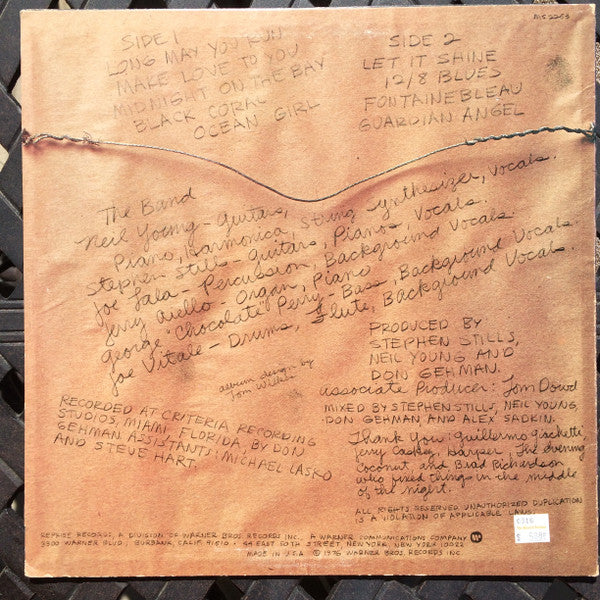 MS 2253
SIDE 1
LONG MAY YOU RUN
MAKE LOVE TO YOU
MIDNIGHT ON THE BAY
BLACK CORAL
OCEAN GIRL
SIDE 2
LET IT SHINE
12/8 BLUES
FONTAINEBLEAU
GUARDIAN ANGEL
The Band
Neil Young - Guitars,
Piano, Harmonica, String Synthesizer, Vocals.
Stephen Stills - Guitars, Pianos, Vocals.
Joe Lala - Percussion, Background Vocals.
Jerry Aiello - Organ, Piano
George 'Chocolate' Perry - Bass, Background Vocals.
Joe Vitale - Drums, Flute, Background Vocals.
album design by
Tom Wilkes
PRODUCED BY
STEPHEN STILLS,
NEIL YOUNG AND
DON GEHMAN.
associate Producer: Tom Dowd
MIXED BY STEPHEN STILLS, NEIL YOUNG,
DON GEHMAN AND ALEX SADKIN.
RECORDED AT CRITERIA RECORDING
STUDIOS, MIAMI, FLORIDA, BY DON
GEHMAN. ASSISTANTS: MICHAEL LASKO
AND STEVE HART.
Thank You: Guillermo Giachetti,
Jerry Caskey, Harper, The evening
Coconut, and Brad Richardson
who fixed things in the middle
of the night.
ALL RIGHTS RESERVED UNAUTHORIZED DUPLICATION
IS A VIOLATION OF APPLICABLE LAWS.
REPRISE RECORDS, A DIVISION OF WARNER BROS. RECORDS INC. A WARNER COMMUNICATIONS COMPANY
3300 WARNER BLVD. BURBANK, CALIF. 91510 • 44 EAST 50TH STREET, NEW YORK, NEW YORK 10022
MADE IN U.S.A. © 1976 WARNER BROS. RECORDS INC